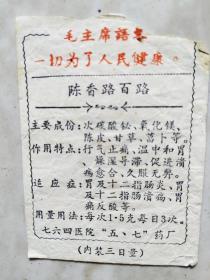 毛主席语录
一切为了人民健康。
陈香路百路
主要成份：次碳酸铋、氧化镁、
陈皮、甘草、莒卜等。
作用特点：行气止痛、温中和胃
、燥湿导滞、促进溃
疡愈合、久服无弊。
适应症：胃及十二指肠炎、胃
及十二指肠溃疡、胃
病反酸等。
用量用法：每次1·5克每日3次。
七六四医院“五、七”药厂
（内装三日量）